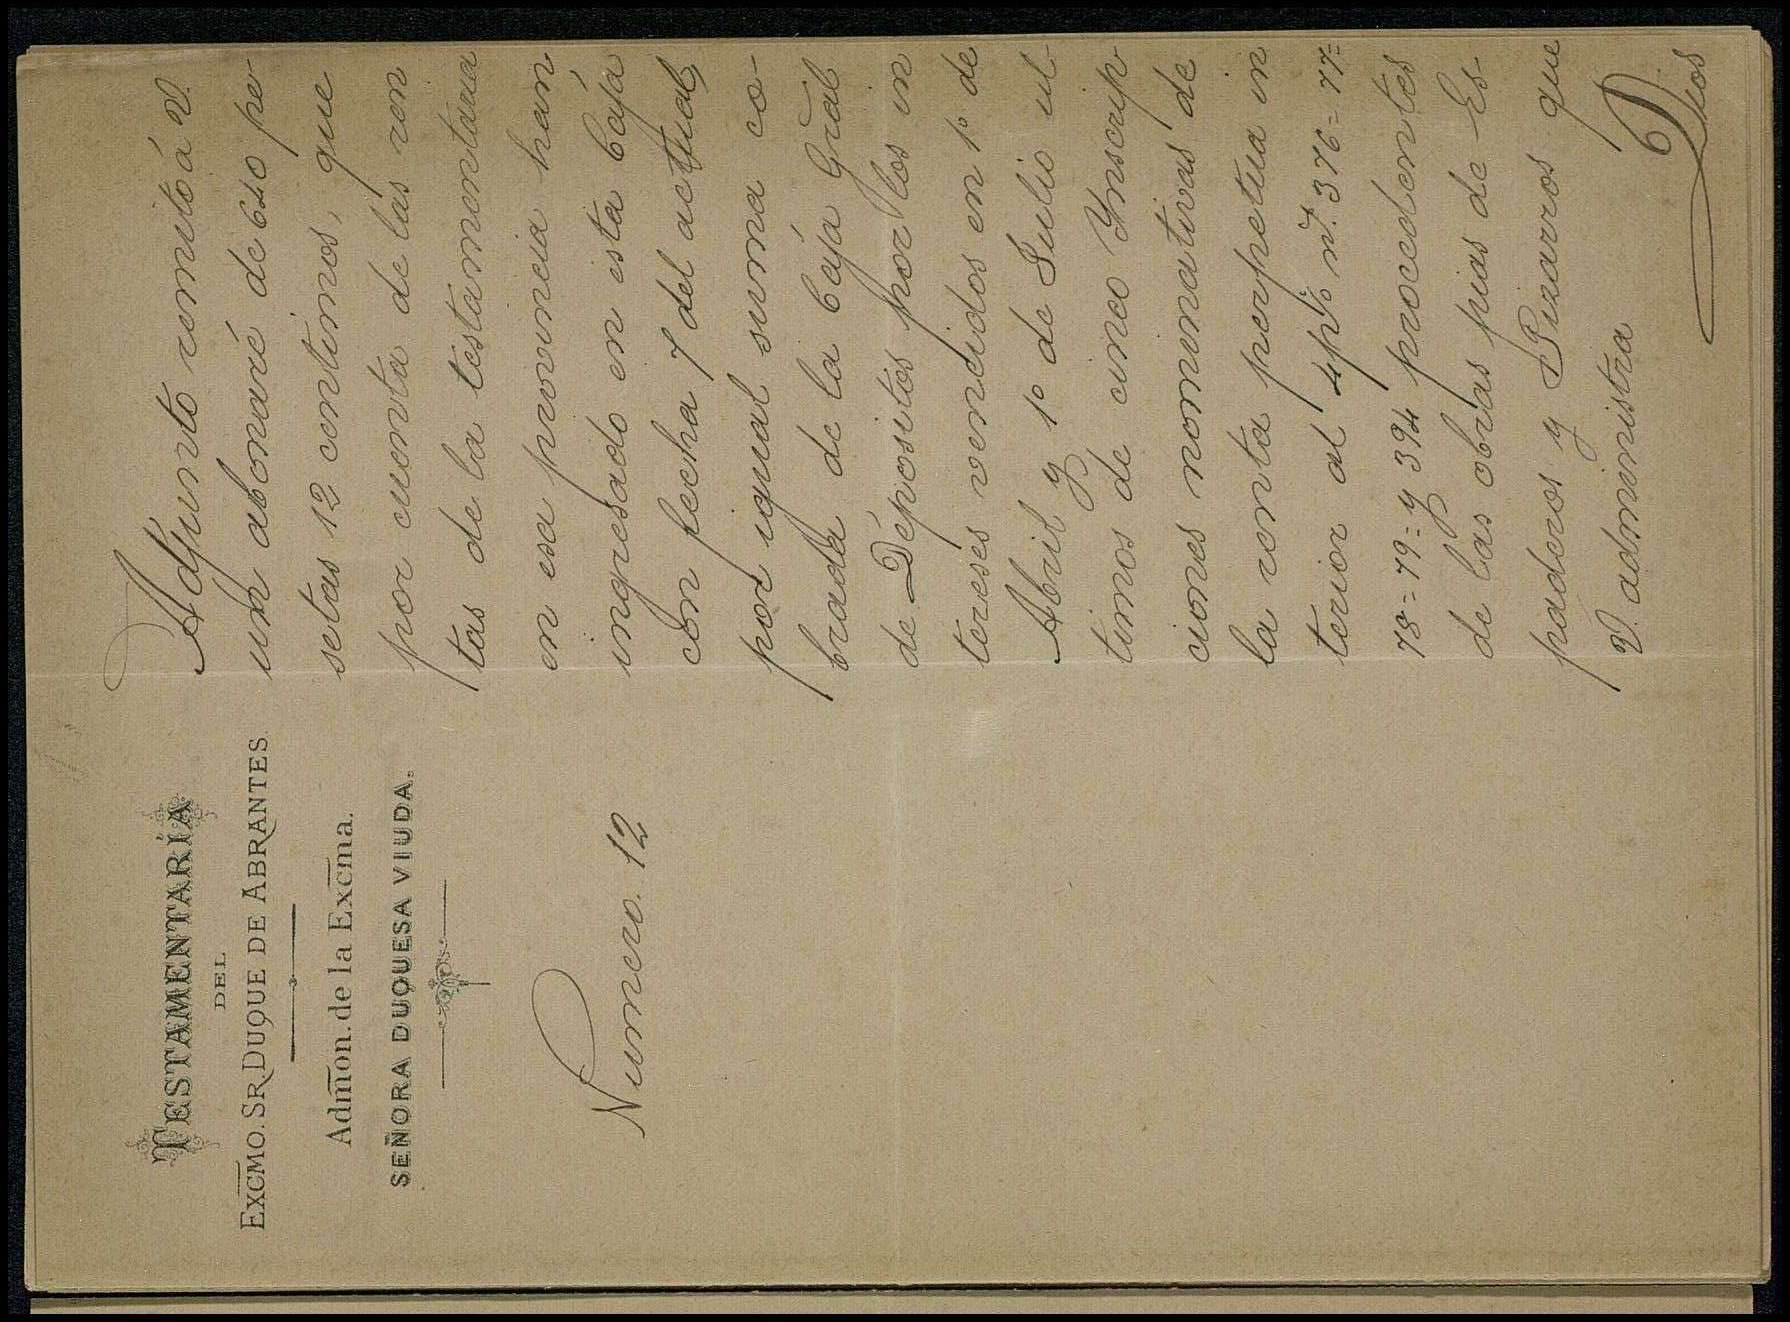 TESTAMENTARÍA
DEL
EXCMO. SR. DUQUE DE ABRANTES
Admon. de la Excma.
SEÑORA DUQUESA VIUDA.
Numero. 12
Adjunto remito á V.
un abonaré de 640 pe-
setas 12 centimos, que
por cuenta de las ren
tas de la testamentaria
en esa provincia han
ingresado en esta Caja
con fecha 7 del actual,
por igual suma co-
brada de la Caja Gral
de Depositos por los in
tereses vencidos en 1º de
Abril y 1º de Julio ul-
timos de cinco Ynscrip
ciones nominativas de
la renta perpetua in
terior al 4 p% nº. 376= 77=
78= 79= y 394 procedentes
de las obras pias de Es-
paderos y Pizarros que
V. administra
Dios